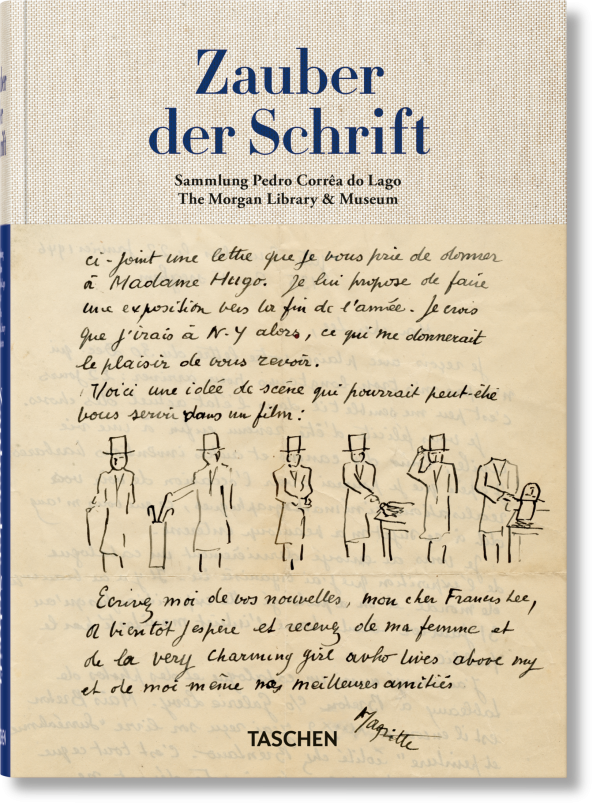 Zauber
der Schrift
Sammlung Pedro Corrêa do Lago
The Morgan Library & Museum
ci-joint une lettre que je vous prie de donner
à Madame Hugo. Je lui propose de faire
une exposition vers la fin de l'année. Je crois
que j'irais à N-Y alors, ce qui me donnerait
le plaisir de vous revoir.
Voici une idée de scène qui pourrait peut-être
vous servir dans un film :
Ecrivez moi de vos nouvelles, mon cher Francis Lee,
A bientôt j'espère et recevez de ma femme et
de la very charming girl who lives above my
et de moi même nos meilleures amitiés
Magritte
TASCHEN